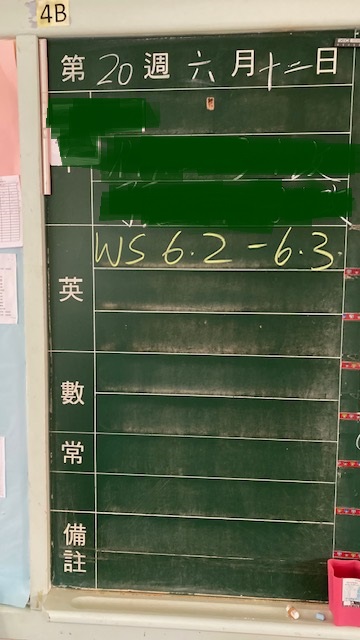 4B
第 20 週 六 月 十二 日
英 WS 6.2 - 6.3.
數
常
備註